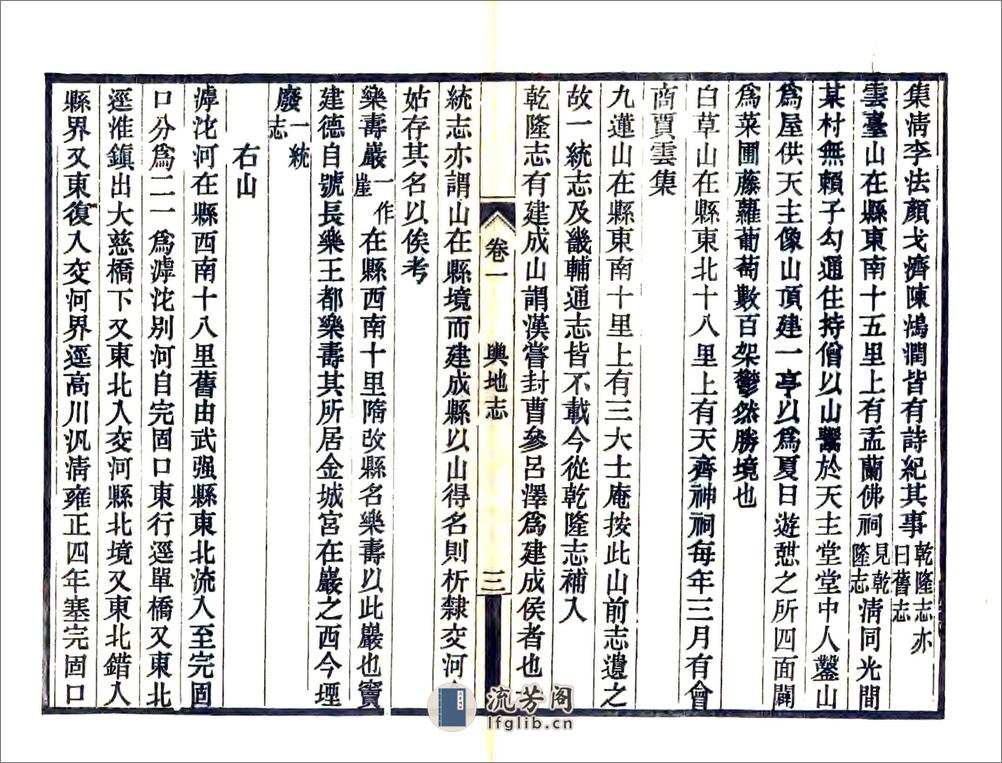 集清李法顏戈濟陳鴻潤皆有詩紀其事乾隆志亦曰舊志
雲臺山在縣東南十五里上有盂蘭佛祠見乾隆志清同光間
某村無賴子勾通住持僧以山鬻於天主堂堂中人鑿山
爲屋供天主像山頂建一亭以爲夏日遊憇之所四面闢
爲菜圃藤蘿葡萄數百架鬱然勝境也
白草山在縣東北十八里上有天齊神祠每年三月有會
商賈雲集
九蓮山在縣東南十里上有三大士庵按此山前志遺之
故一統志及畿輔通志皆不載今從乾隆志補入
乾隆志有建成山謂漢嘗封曹參呂澤爲建成侯者也
統志亦謂山在縣境而建成縣以山得名則析隸交河
姑存其名以俟考
樂壽巖一作崖在縣西南十里隋改縣名樂壽以此巖也竇
建德自號長樂王都樂壽其所居金城宮在巖之西今堙
廢一統志
右山
滹沱河在縣西南十八里舊由武强縣東北流入至完固
口分爲二一爲滹沱别河自完固口東行逕單橋又東北
逕淮鎮出大慈橋下又東北入交河縣北境又東北錯入
縣界又東復入交河界逕高川汎清雍正四年塞完固口
卷一
輿地志
三
流芳阁
lfglib.cn